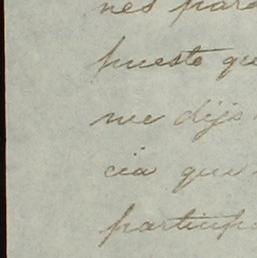 nes para
puesto que
me dijo
cia que
particip